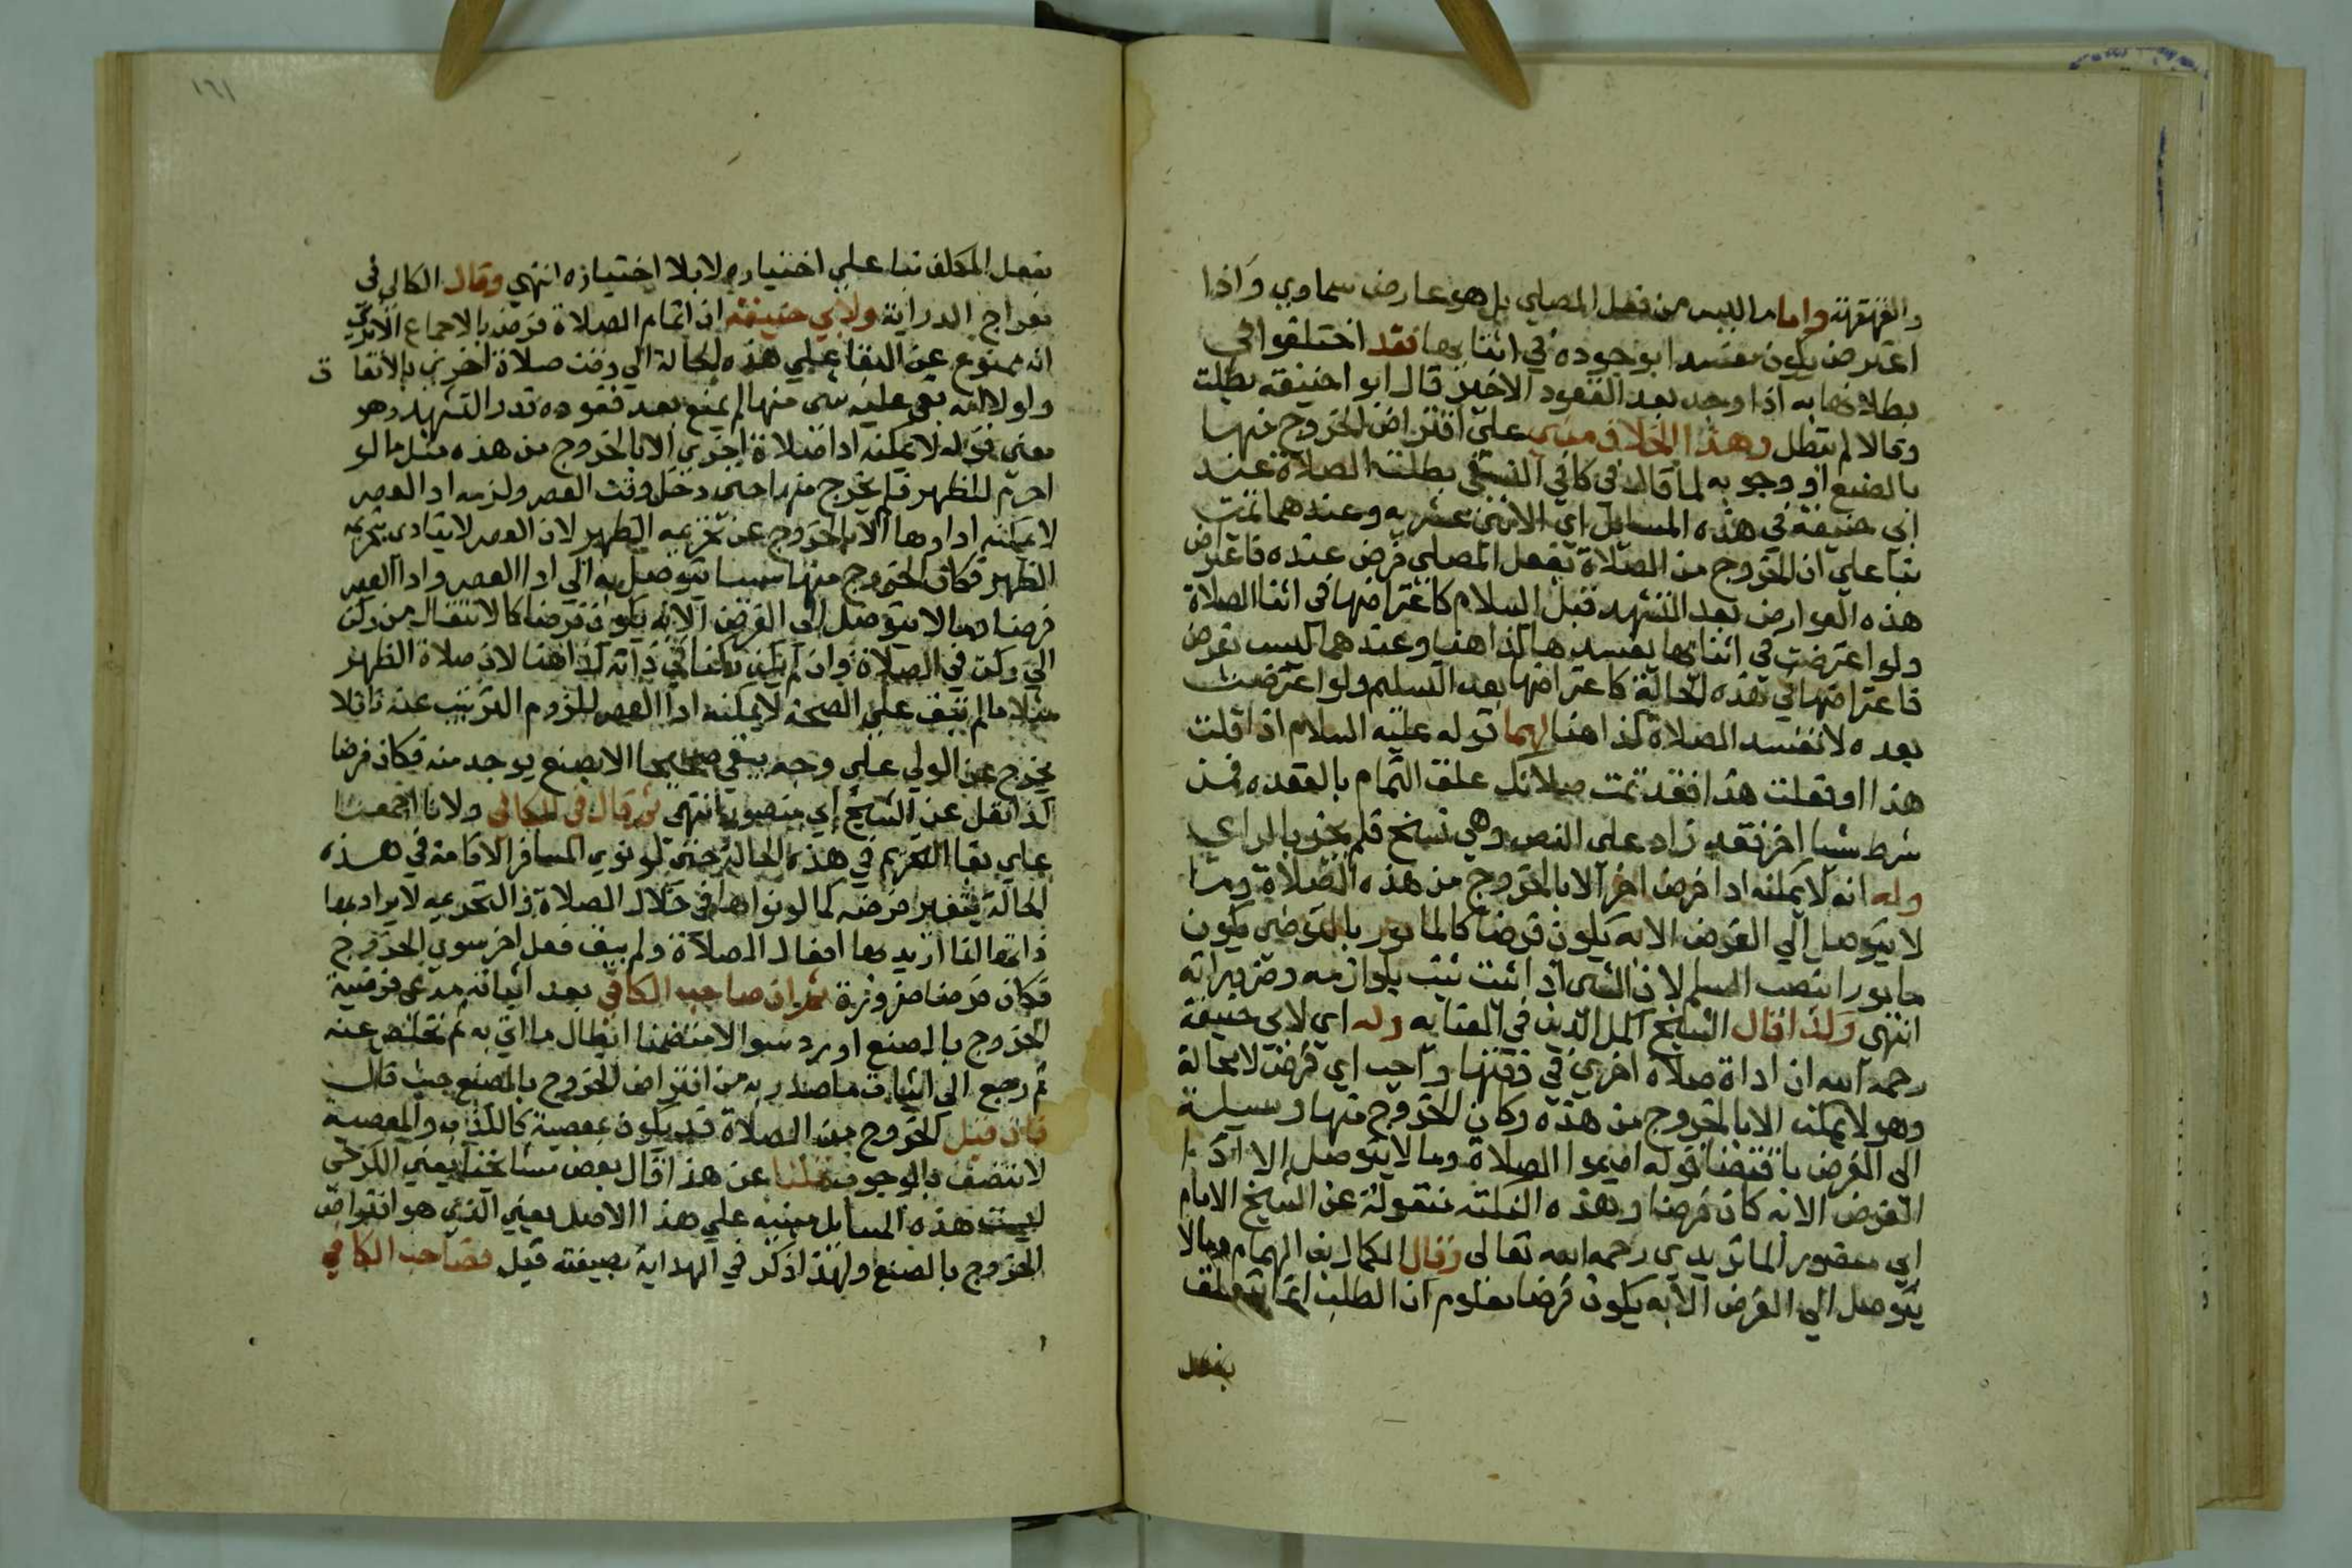 والقهقهة واما ما ليس من فعل المصلي بل هو عارض سماوي واذا
اعترض يكون مفسدا بوجوده في اثنائها فقد اختلفوا في
بطلانها به اذا وجد بعد القعود الاخير قال ابو احنيفة بطلت
وقالا لم تبطل وهذا الخلاف مبني على افتراض الخروج منها
بالصنع او وجوبه لما قال في كافي النسفي بطلت الصلاة عند
ابي حنيفة في هذه المسايل اي الاثني عشريه وعندهما تمت
بنا على ان الخروج من الصلاة بفعل المصلي فرض عنده فاعتراض
هذه العوارض بعد التشهد قبل السلام كاعتراضها في اثنا الصلاة
ولو اعترضت في اثنائها يفسدها كذا هنا وعندهما ليس بفرض
فاعتراضها في هذه الحالة كاعتراضها بعد التسليم ولو اعترضت
بعده لا تفسد الصلاة كذا هنا لهما قوله عليه السلام اذا قلت
هذا او فعلت هذا فقد تمت صلاتك علق التمام بالقعده فمن
شرط شيا اخر فقد زاد على النص وهي نسخ فلم يجز بالراي
وله انه لا يمكنه ادا فرض اخر الا بالخروج من هذه الصلاة وما
لا يتوصل الي الفرض الا به يكون فرضا كالمامور بالتوضي يكون
مامورا بنصب السلم لان الشي اذا ثبت ثبت بلوازمه وضروراته
انتهي ولذا قال الشيخ اكمل الدين في العنايه وله اي لابي حنيفة
رحمه الله ان اداة صلاة اخري في وقتها واجب اي فرض لا محالة
وهو لا يمكنه الا بالخروج من هذه وكان الخروج منها وسيلة
الى الفرض باقتضا قوله اقيموا الصلاة وما لا يتوصل الا ادا
الفرض الا به كان فرضا وهذه النكتة منقولة عن الشيخ الامام
ابي منصور الماتريدي رحمه الله تعالى وقال الكمال بن الهمام وما لا
يتوصل الي الفرض الا به يكون فرضا معلوم ان الطلب انما يتعلق
بفعل
١٦١
بفعل المكلف بنا علي اختياره لا بلا اختيازه انتهي وقال الكاكي في
معراج الدراية ولابي حنيفة ان اتمام الصلاة فرض بالاجماع الا تري
انه ممنوع عن البقا علي هذه الحالة الي وقت صلاة اخري بالاتفا ق
ولولا انه بقي عليه شى منها لم يمنع بعد قعوده قدر التشهد وهو
معني قوله لا يمكنه ادا صلاة اخري الا بالخروج من هذه مثل ما لو
احرم للظهر فلم يخرج منها حتي دخل وقت العصر ولزمه ادا العصر
لا يمكنه اداوها الا بالخروج عن تحريمه الظهر لان العصر لا يتادى بتحريمة
الظهر فكان الخروج منها سببا يتوصل به الي ادا العصر وادا العصر
فرض وما لا يتوصل الى الفرض الا به يكون فرضا كالانتقال من ركن
الي ركن في الصلاة وان لم يكن ركنا في ذاته كذا هنا لان صلاة الظهر
مثلا ما لم تقف علي الصحة لا يمكنه ادا العصر للزوم الترتيب عنه فانلا
يخرج عن الولي علي وجه يبقي صحيحا الا بصنع يوجد منه فكان فرضا
كذا نقل عن الشيخ ابي منصور انتهى ثم قال في الكافي ولانا اجمعنا
علي بقا التحريم في هذه الحالة حتي لو نوي المسافر الاقامة في هذه
الحالة يتغير فرضه كما لو نواها في خلال الصلاة والتحريمه لا يراد بها
ذاتها انما اريد بها افعال الصلاة ولم يبق فعل اخر سوي الخروج
فكان فرضا ضرورة ثم ان صاحب الكافي بعد اثباته مدعي فرضية
الخروج بالصنع اورد سوالا متضمنا ابطال ما اتي به ثم تخلص عنه
ثم رجع الى اثبات ما صدر به من افتراض الخروج بالصنع حيث قال
فان قيل الخروج من الصلاة قد يكون بمعصية كالكذب والمعصية
لا تتصف بالوجوب قلنا عن هذا قال بعض مشايخنا يعني الكرخي
ليست هذه المسايل مبنيه علي هذا الاصل يعني الذي هو افتراض
الخروج بالصنع ولهذا ذكر في الهداية بصيغة قيل فصاحب الكافي